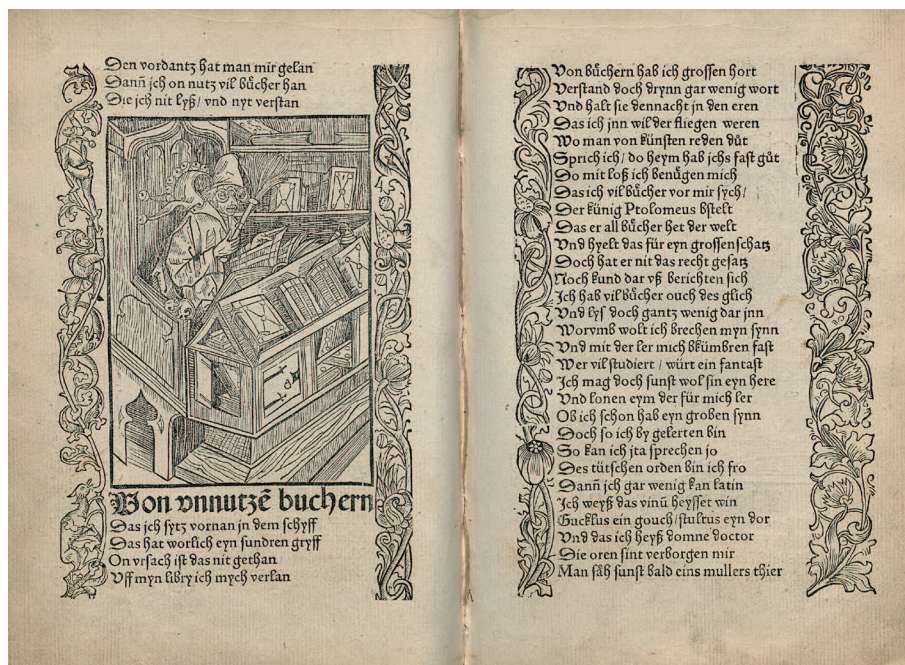 Den vordantz hat man mir gelan
Dann̄ jch on nutz vil bůcher han
Die jch nit lyß/ vnd nyt verstan
Von vnnutzē buchern
Das jch sytz vornan jn dem schyff
Das hat worlich eyn sundren gryff
On vrsach ist das nit gethan
Vff myn libry ich mych verlan
Von bůchern hab ich grossen hort
Verstand doch drynn gar wenig wort
Vnd halt sie dennacht in den eren
Das ich jnn wil der fliegen weren
Wo man von künsten reden důt
Sprich ich/ do heym hab jchs fast gůt
Do mit loß ich benůgen mich
Das ich vil bůcher vor mir sych/
Der künig Ptolomeus bstelt
Das er all bůcher het der welt
Vnd hyelt das für eyn grossen schatz
Doch hat er nit das recht gesatz
Noch kund dar vß berichten sich
Ich hab vil bůcher ouch des glich
Vnd lys doch gantz wenig dar jnn
Worvmb wolt ich brechen myn synn
Vnd mit der ler mich bkümbren fast
Wer vil studiert/ würt ein fantast
Ich mag doch sunst wol sin eyn here
Vnd lonen eym der für mich ler
Ob ich schon hab eyn groben synn
Doch so ich by gelerten bin
So kan ich jta sprechen jo
Des tütschen orden bin ich fro
Dann̄ jch gar wenig kan latin
Ich weyß das vinū heysset win
Gucklus ein gouch/ stultus eyn dor
Vnd das ich heyß domne doctor
Die oren sint verborgen mir
Man sǎh sunst bald eins mullers thier